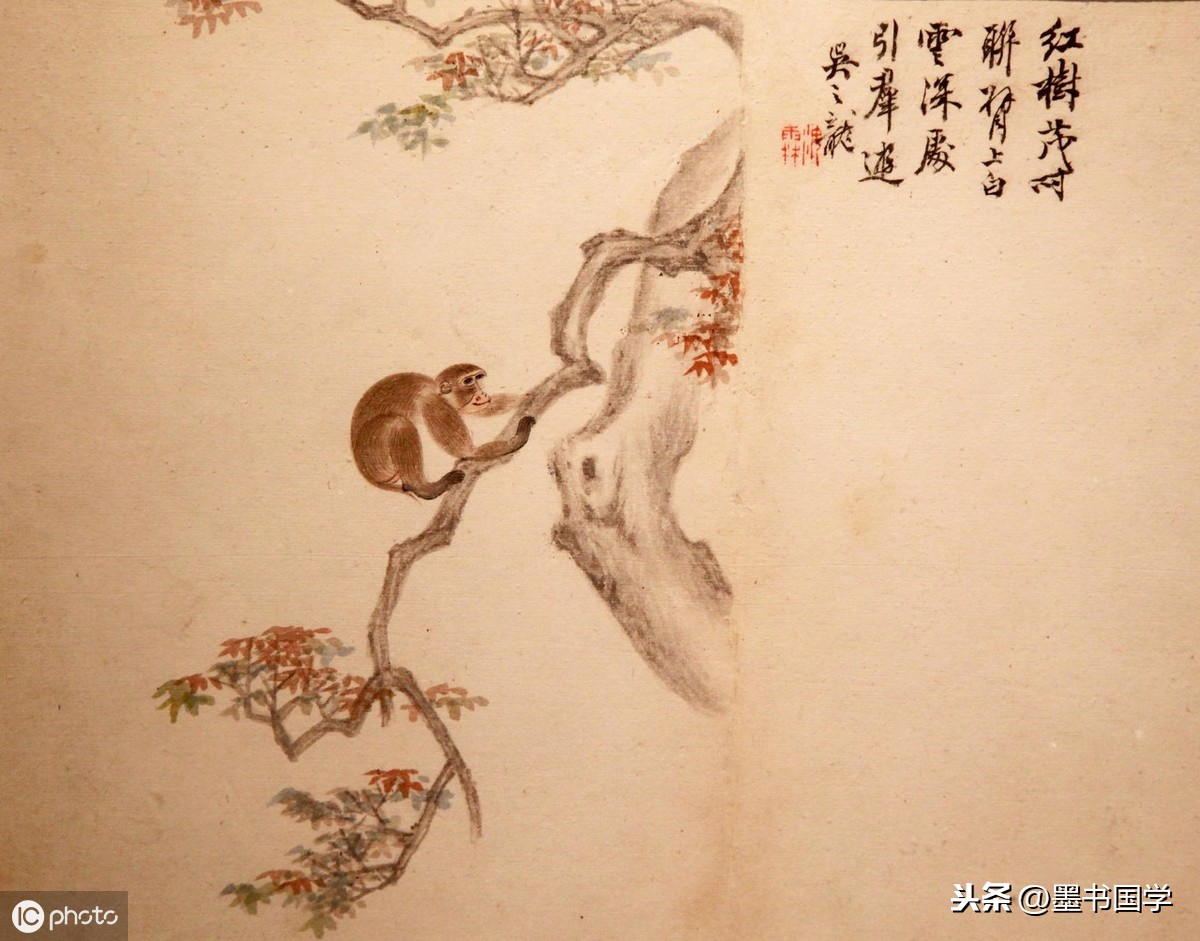 紅樹茂時
聯臂上白
雲深處
引羣遊
吳之龍
IC photo
头条 @墨书国学